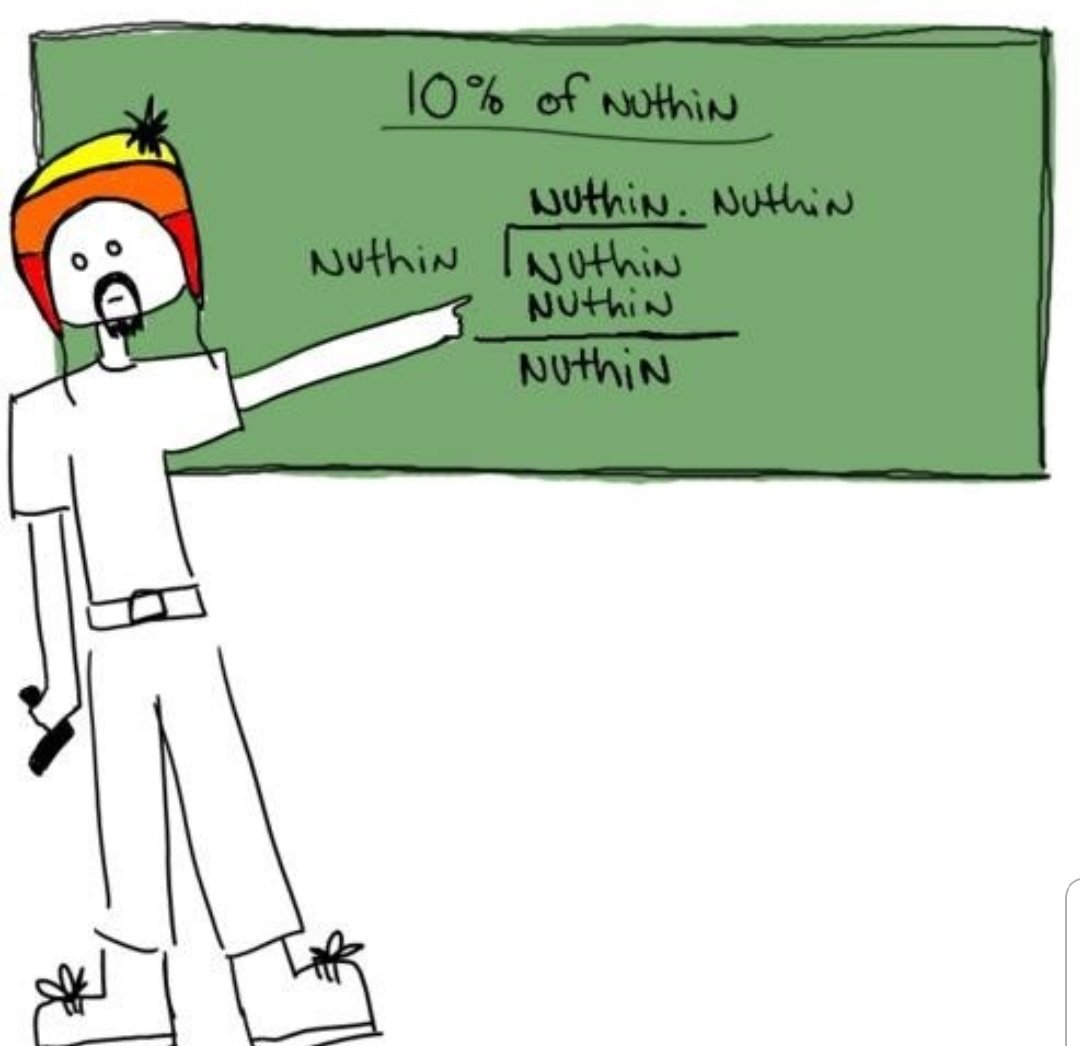 10% of Nuthin
Nuthin. Nuthin
Nuthin Nuthin
Nuthin
Nuthin